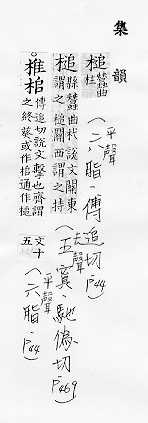 集韻
槌 蠶曲柱 (六脂,傳追切 P44)
平聲
槌 縣蠶曲杙說文關東謂之槌關西謂之持 (五寘,馳偽切 P469)
去聲
。椎桘 傳追切說文擊也齊謂之終葵或作桘通作槌 文十五 (六脂 P44)
平聲